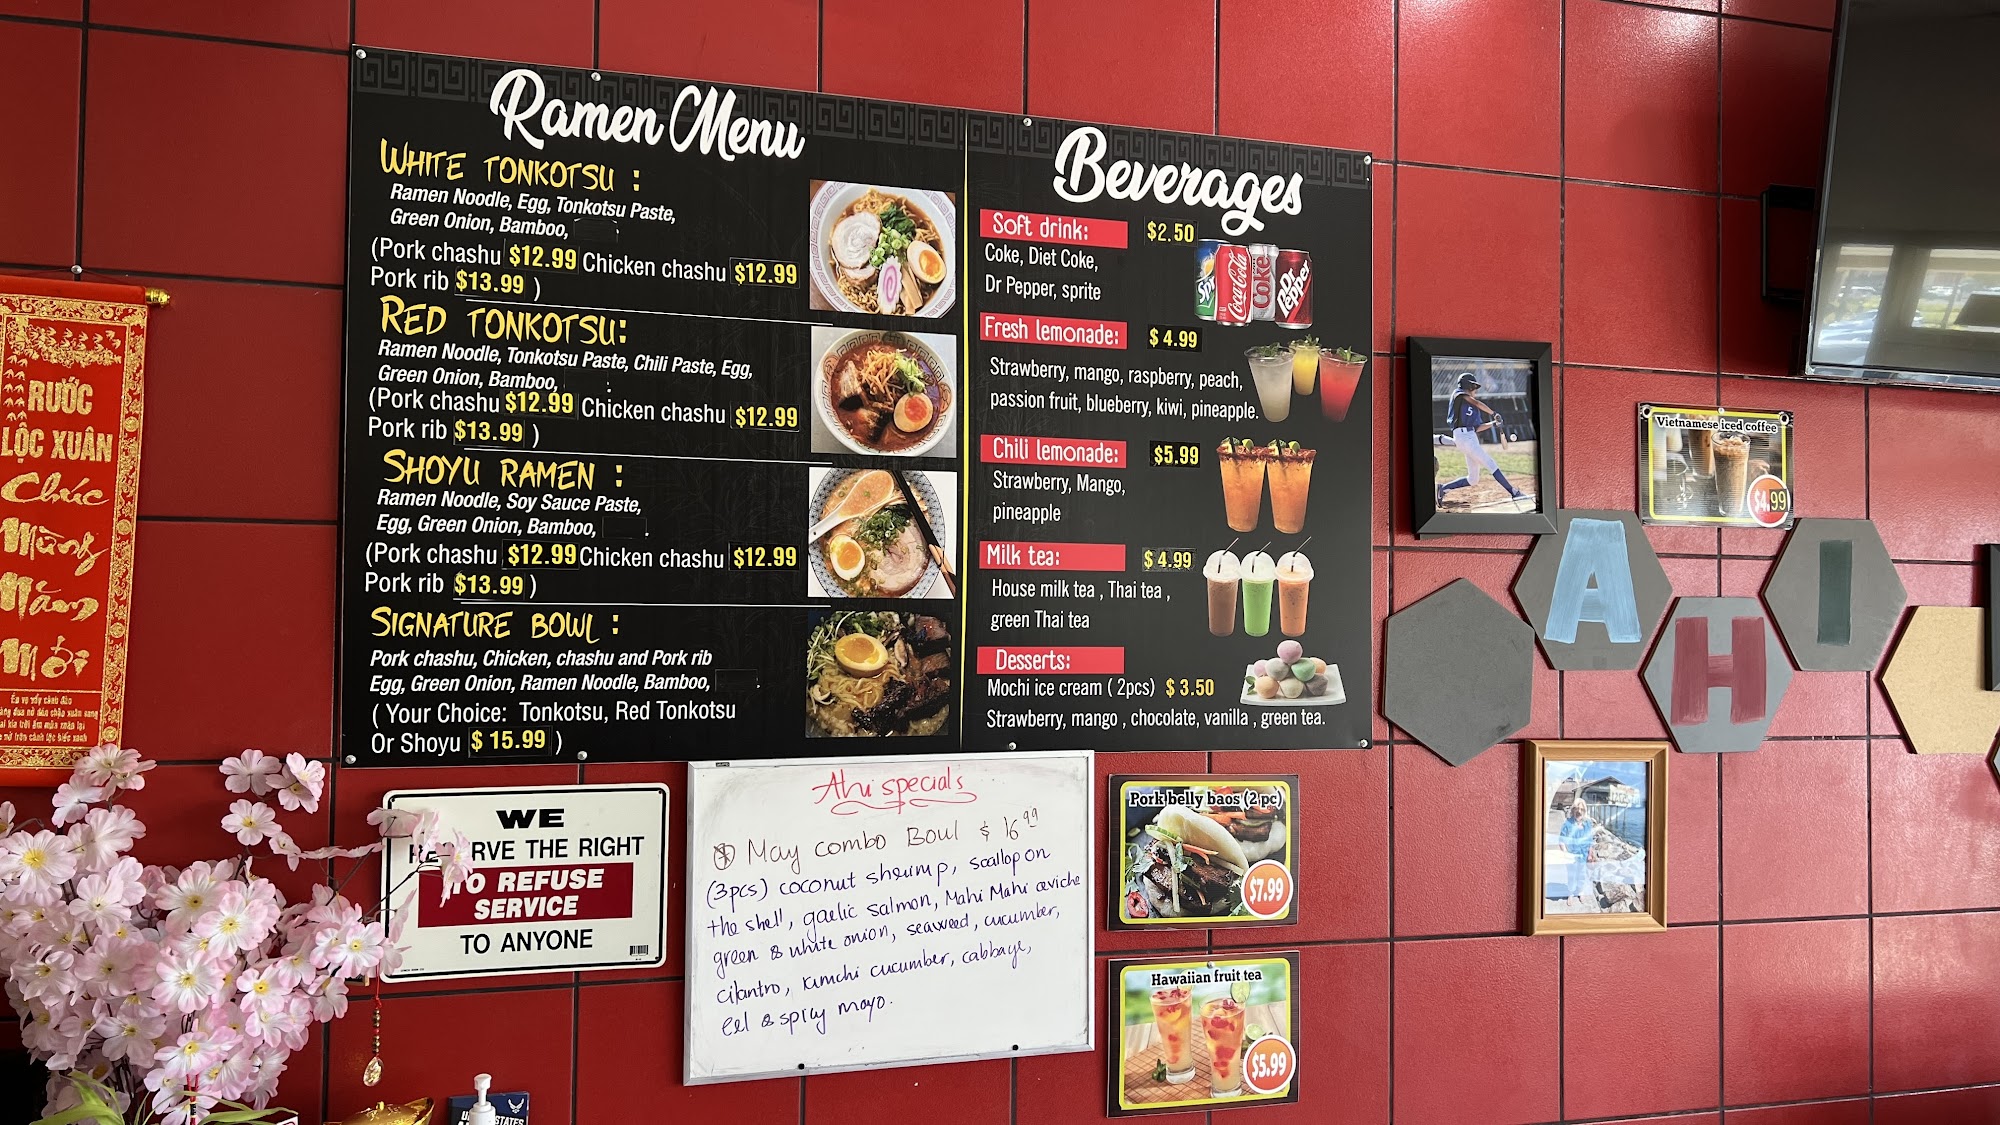 Ramen Menu
WHITE TONKOTSU :
Ramen Noodle, Egg, Tonkotsu Paste,
Green Onion, Bamboo,
(Pork chashu $12.99 Chicken chashu $12.99
Pork rib $13.99 )
RED TONKOTSU:
Ramen Noodle, Tonkotsu Paste, Chili Paste, Egg,
Green Onion, Bamboo,
(Pork chashu $12.99 Chicken chashu $12.99
Pork rib $13.99 )
SHOYU RAMEN :
Ramen Noodle, Soy Sauce Paste,
Egg, Green Onion, Bamboo,
(Pork chashu $12.99 Chicken chashu $12.99
Pork rib $13.99 )
SIGNATURE BOWL :
Pork chashu, Chicken, chashu and Pork rib
Egg, Green Onion, Ramen Noodle, Bamboo,
( Your Choice: Tonkotsu, Red Tonkotsu
Or Shoyu $ 15.99 )
Beverages
Soft drink: $2.50
Coke, Diet Coke,
Dr Pepper, sprite
Spr
Coca-Cola
Coke
Dr Pepper
Fresh lemonade: $ 4.99
Strawberry, mango, raspberry, peach,
passion fruit, blueberry, kiwi, pineapple.
Chili lemonade: $5.99
Strawberry, Mango,
pineapple
Milk tea: $ 4.99
House milk tea , Thai tea ,
green Thai tea
Desserts:
Mochi ice cream ( 2pcs) $ 3.50
Strawberry, mango , chocolate, vanilla , green tea.
RƯỚC
LỘC XUÂN
Chúc
Mừng
Năm
Mới
WE
RE RVE THE RIGHT
TO REFUSE
SERVICE
TO ANYONE
Ahi specials
May combo Bowl $ 16.99
(3pcs) coconut shrimp, scallop on
the shell, garlic salmon, Mahi Mahi ceviche
green & white onion, seaweed, cucumber,
cilantro, kimchi cucumber, cabbage,
eel & spicy mayo.
Pork belly baos (2 pc)
$7.99
Hawaiian fruit tea
$5.99
Vietnamese iced coffee
$4.99
5
A
H
I